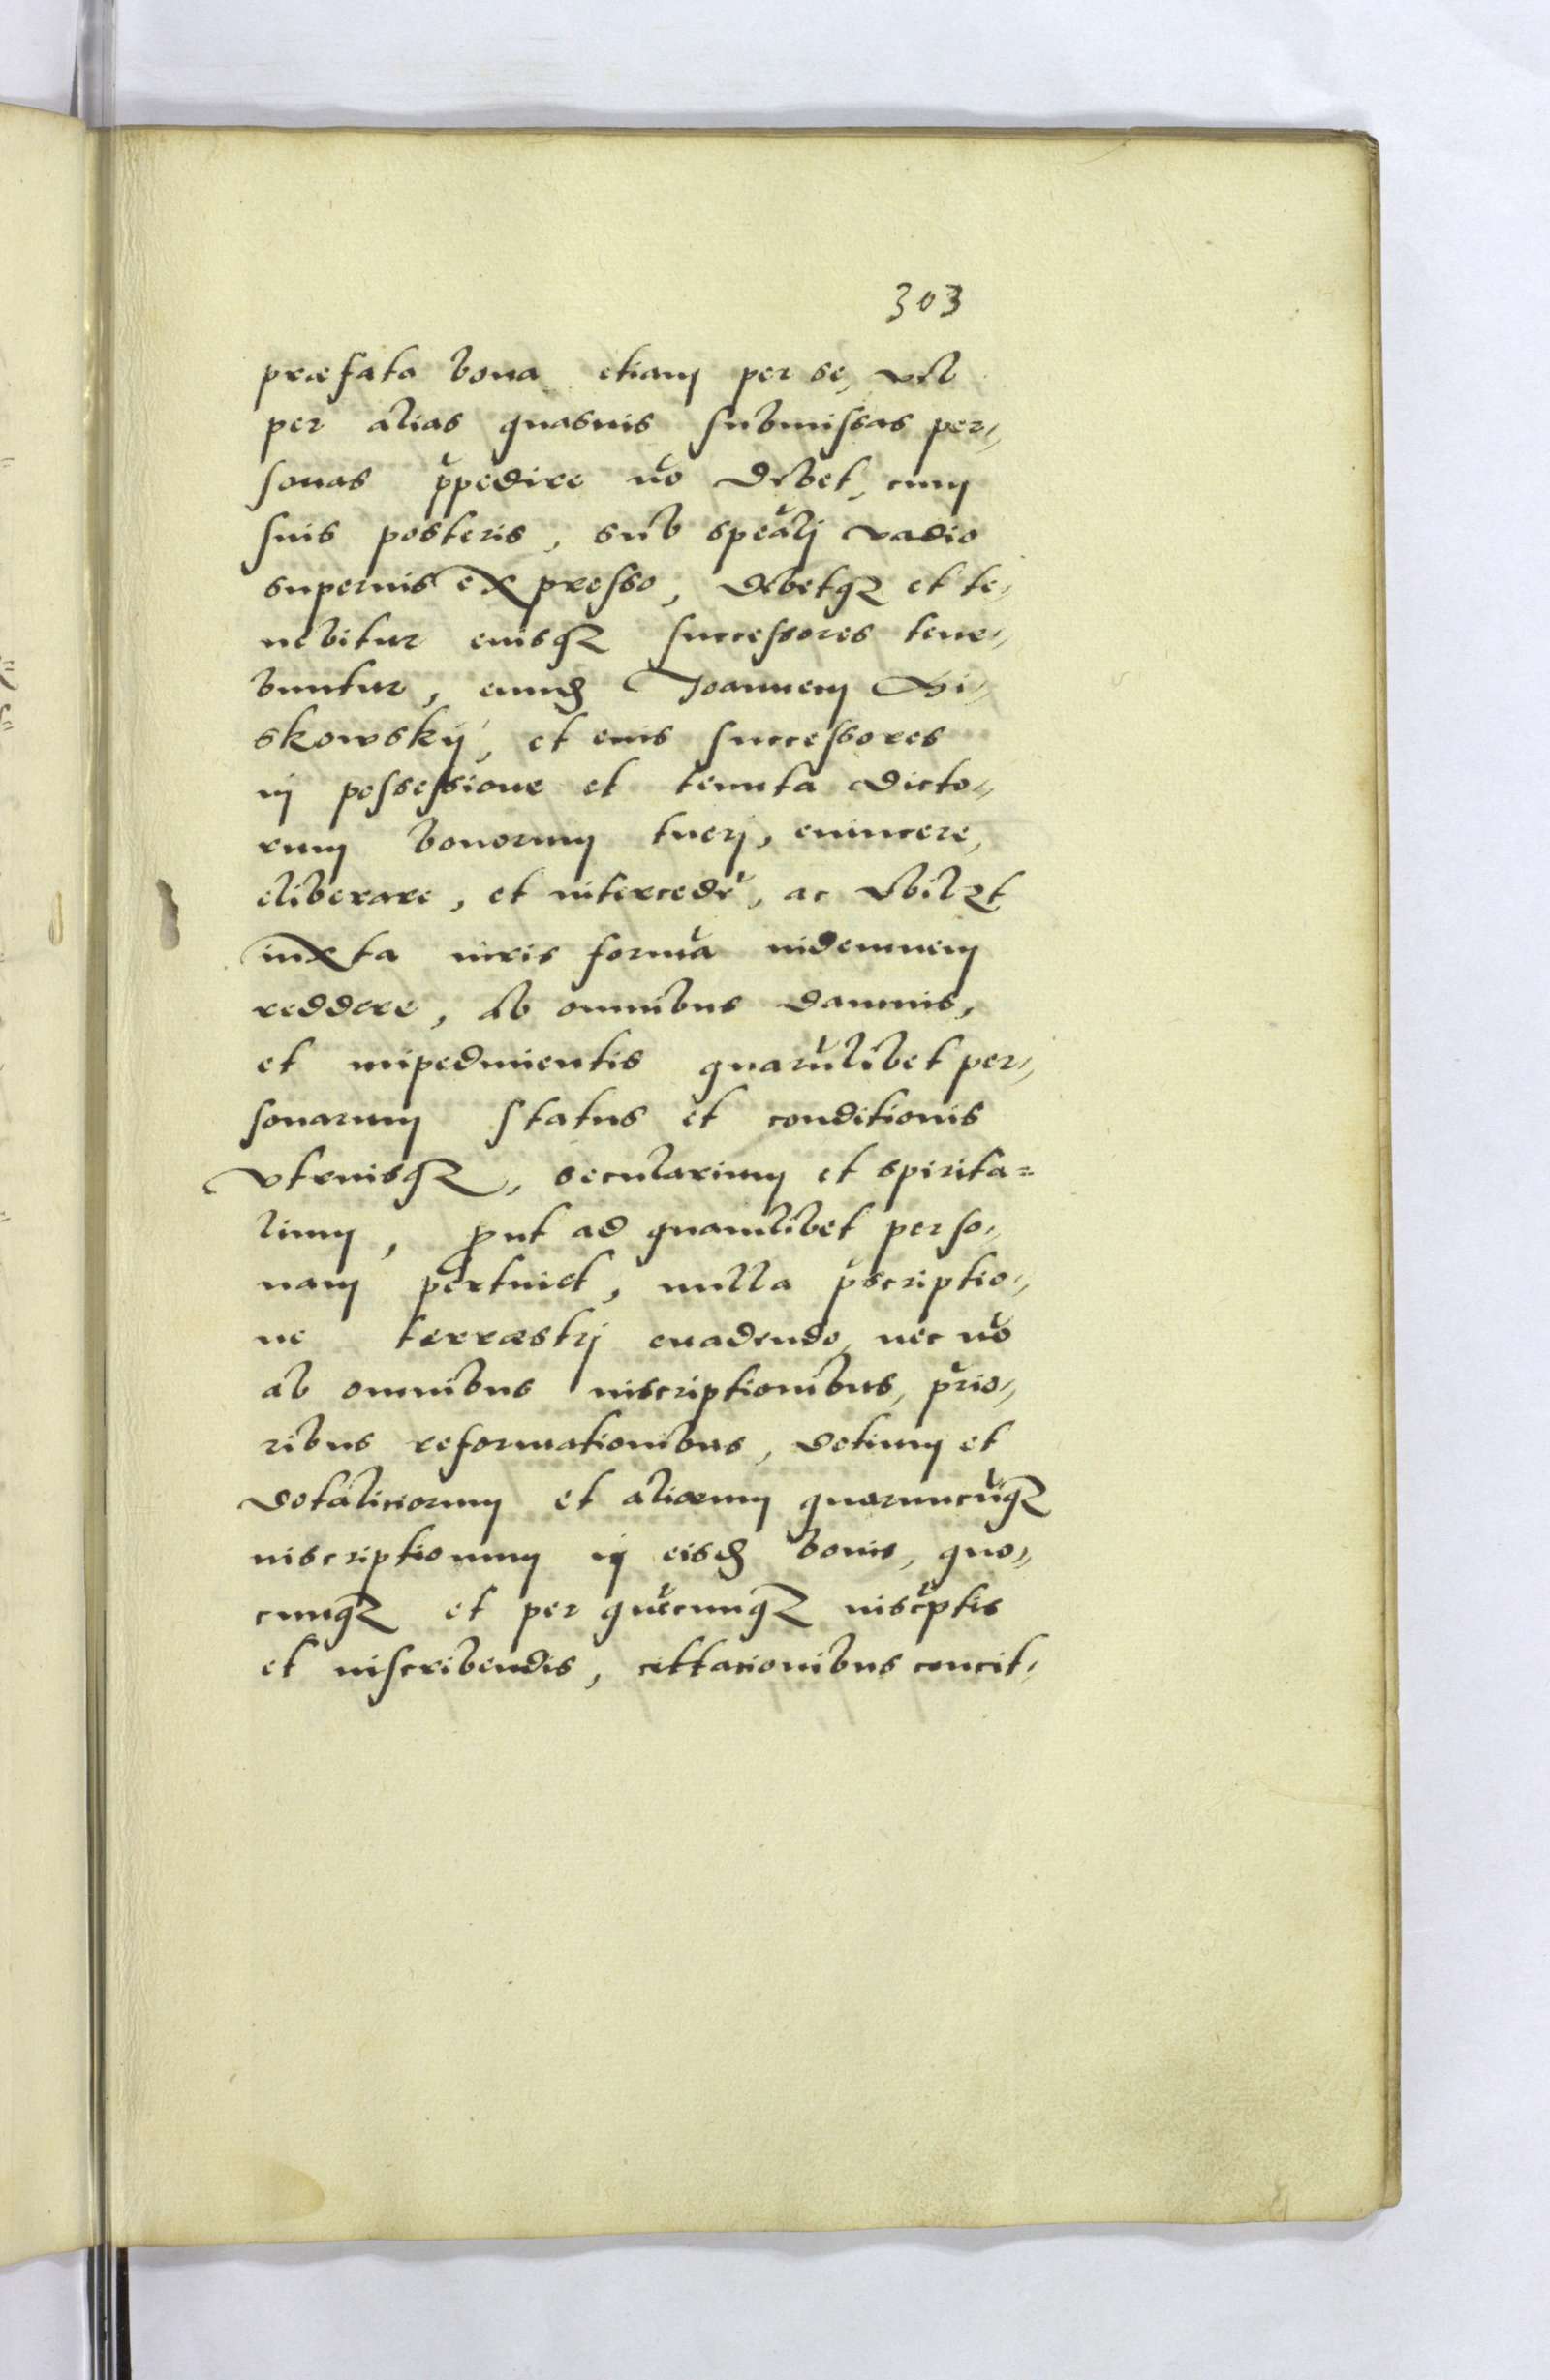 303
præfata bona etiam per se, vel
per alias quasuis submissas per„
sonas p̄pedire nō debet, cum
suis posteris, sub speāli vadio
superius expresso, debetq₃ et te„
nebitur eiusq₃ successores tene„
buntur, eund Joannem
skowskÿ, et eius successores
in possessione et tenuta dicto„
rum bonorum tueri, euincere,
eliberare, et intercedē, ac
iuxta iuris formā indemnem
reddere, ab omnibus damnis,
et impedimentis quarūlibet per„
sonarum status et conditionis
vtriusq₃, secularium et spirita=
lium, ꝓut ad quamlibet perso„
nam pertinet, nulla p̄scriptio„
ne terræstrj euadendo, nec nō
ab omnibus inscriptionibus, prio„
ribus reformationibus, dotium et
dotalitiorum et aliarum quarumcūq₃
inscriptionum in eisd bonis, quo„
cunq₃ et per quēcunq₃ inscptis
et inscribendis, cittacionibus concit„